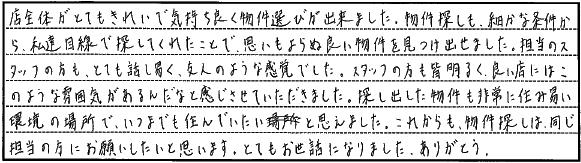 店全体がとてもきれいで気持ち良く物件選びが出来ました。物件探しも、細かな条件か
ら、私達目線で探してくれたことで思いもよらぬ良い物件を見つけ出せました。担当のス
タッフの方も、とても話し易く、友人のような感覚でした。スタッフの方も皆明るく、良い店にはこ
のような雰囲気があるんだなと感じさせていただきました。探し出した物件も非常に住み易い
環境の場所で、いつまでも住んでいたい場所と思えました。これからも、物件探しは、同じ
担当の方にお願いしたいと思います。とてもお世話になりました。ありがとう。